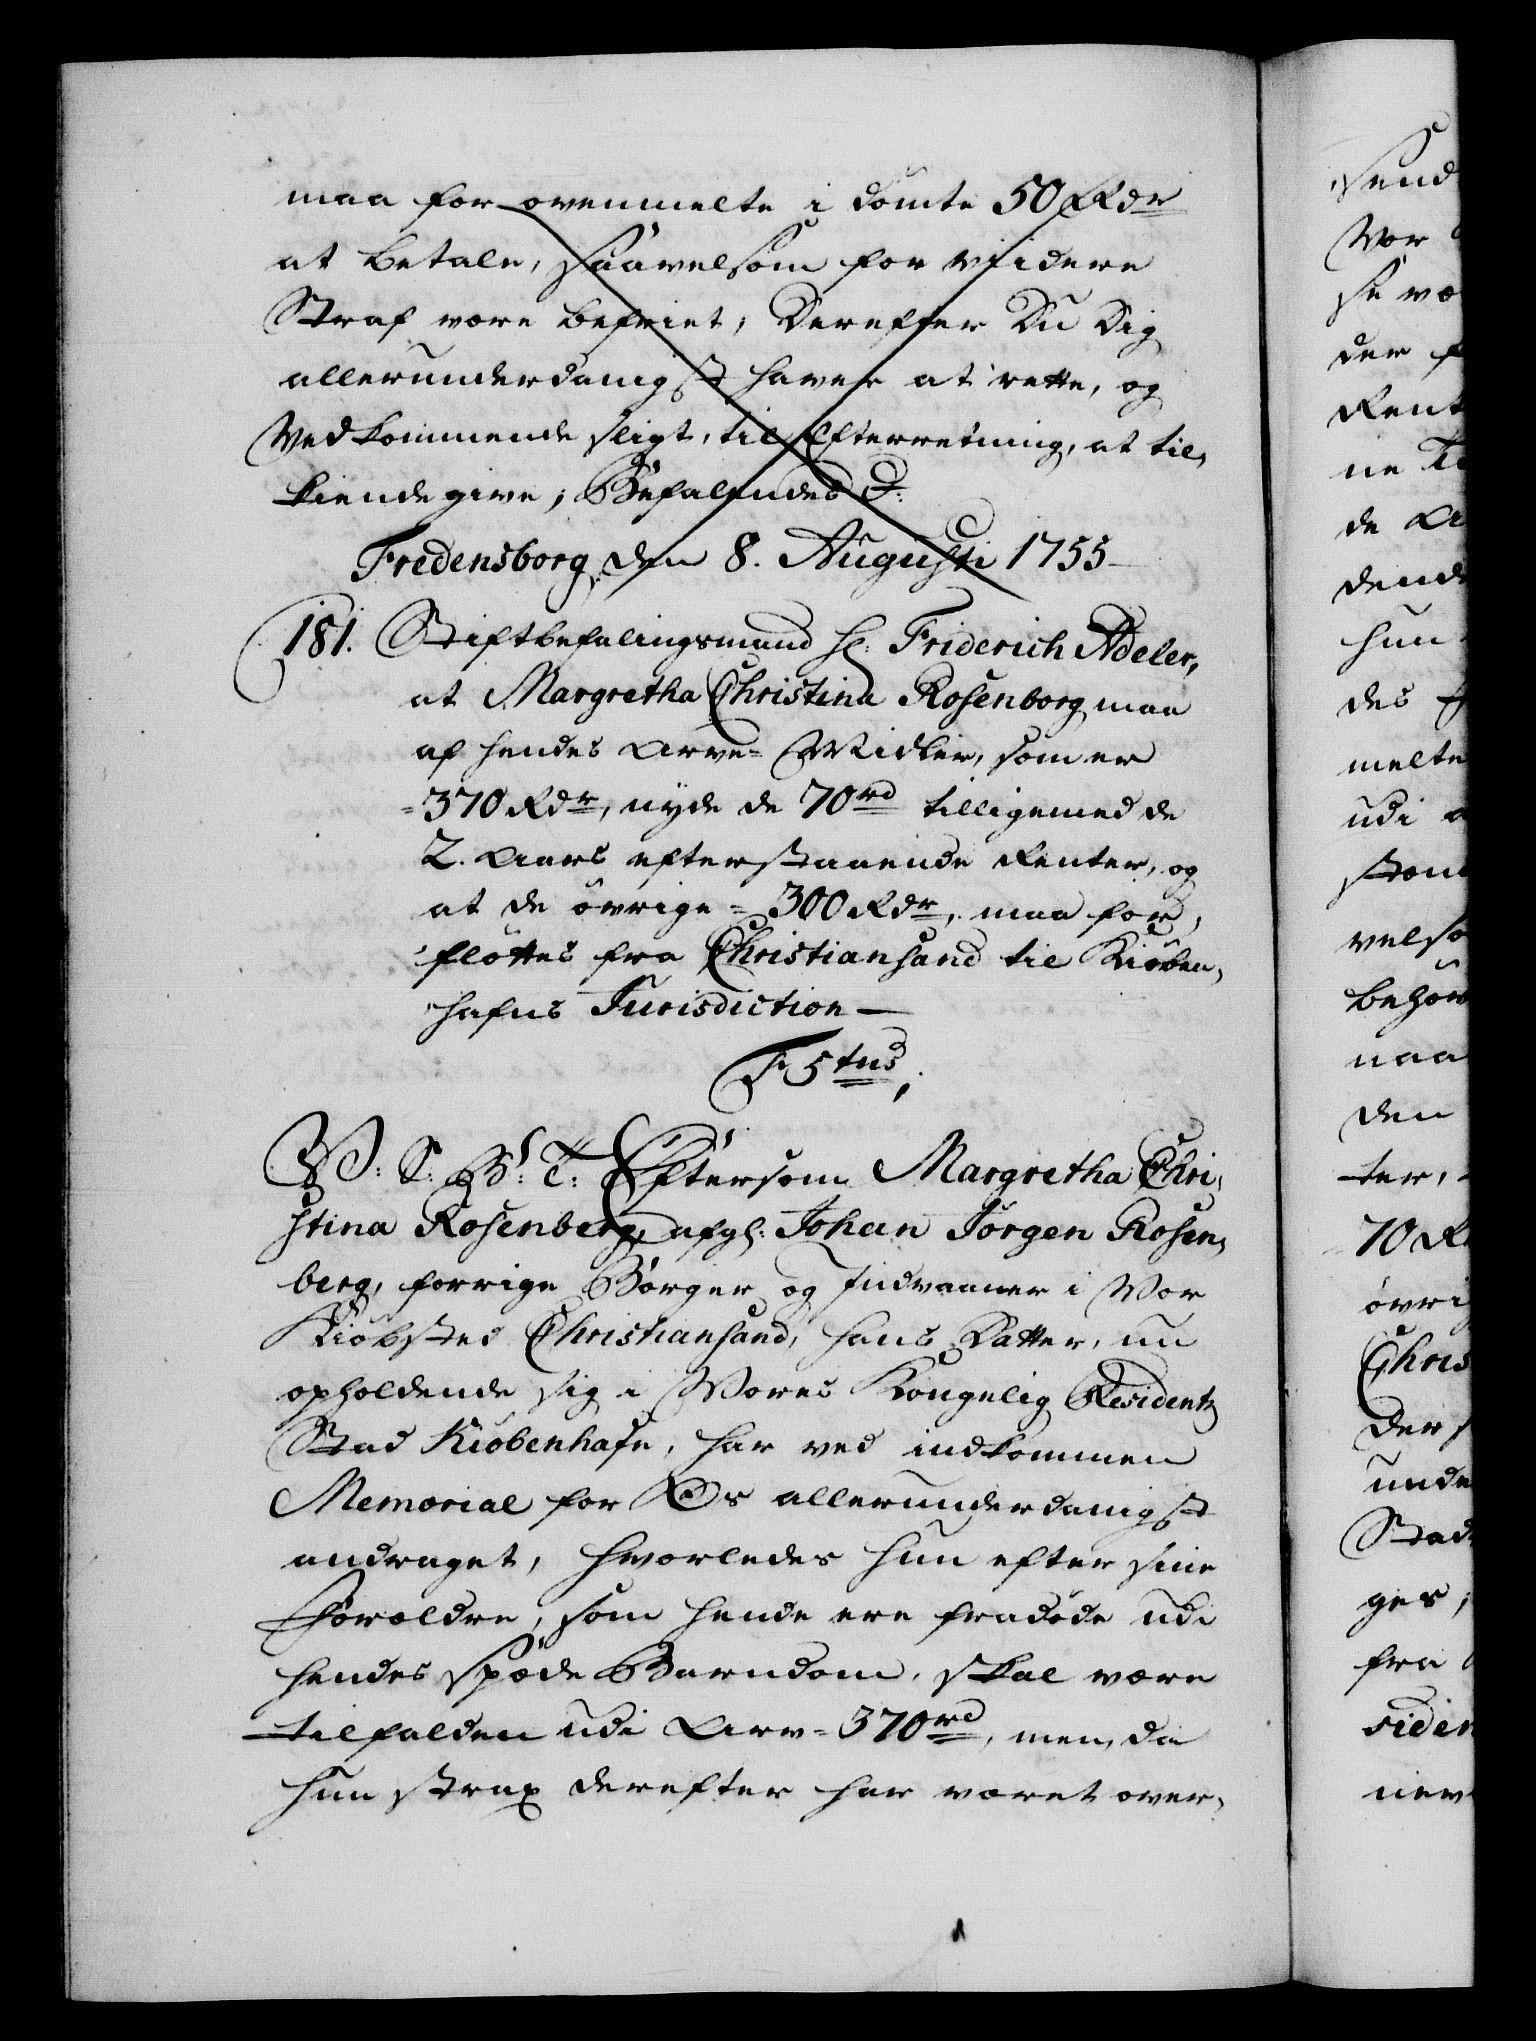 maa for ovenmelte i dömte 50 Rdr
at betale, saavelsom for viidere
Straf være befriet; Derefter Du Dig
allerunderdanigst haver at rette, og
Vedkommende sligt, til Efterretning, at til,
kiende give; Befalendes &:
Fredensborg den 8. Augusti 1755
181. Stiftbefalingsmand Hr: Friderich Adeler,
at Margretha Christina Rosenborg maa
af hendes Arve-Midler, som er
370 Rdr, nyde de 70rd tilligemed de
2. Aars efterstaaende Renter, og
at de övrige 300 Rdr, maa for,
flöttes fra Christiansand til Kiöben,
hafns Jurisdiction —
F5tus,
V: S: G: T: Eftersom Margretha Chri,
stina Rosenberg, afgl: Johan Jörgen Rosen,
berg, forrige Borger og Indvaaner i Vor
Kiöbsted Christiansand, hans Datter, nu
opholdende sig i Vores Kongelig Residentz
Stad Kiöbenhafn, har ved indkommen
Memorial for Os allerunderdanigst
andraget, hvorledes hun efter sine
Forældre, som hende ere fradöde udi
hendes spæde Barndom, skal være
tilfalden udi Arv 370rd, men, da
hun strax derefter har været over,
send
Vor
se væ
der f
Rent
ne
de A
dende
hun
des
melte
udi
velso
behør
naa
den
ter,
70 R
övri
Chris
der
unde
Stad
ges,
fra
siden